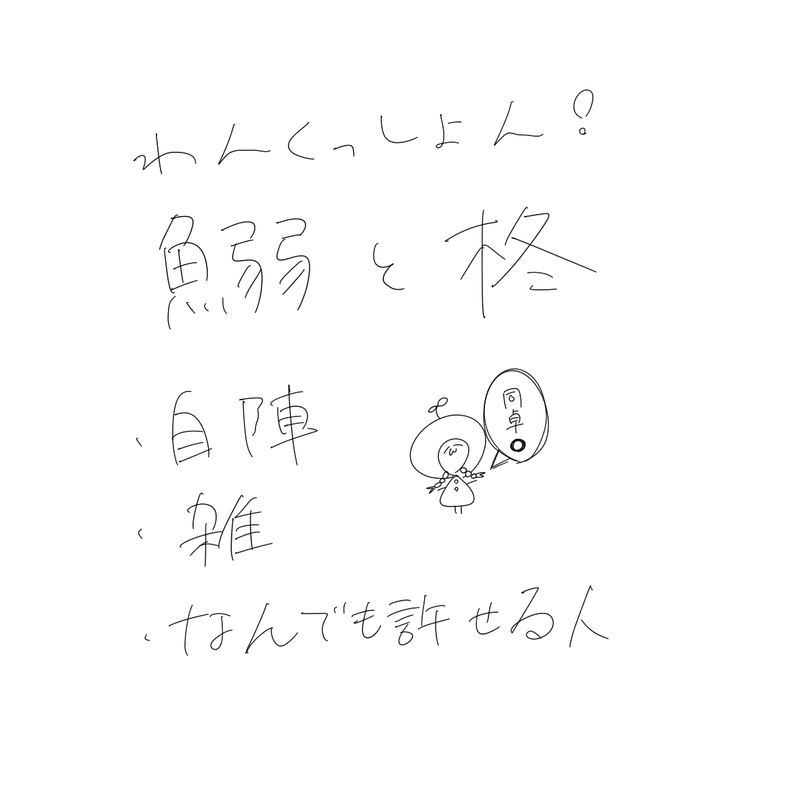 わんくっしょん!
鰯と柊
・自陣
同卓○
・雑
・なんでも許せる人